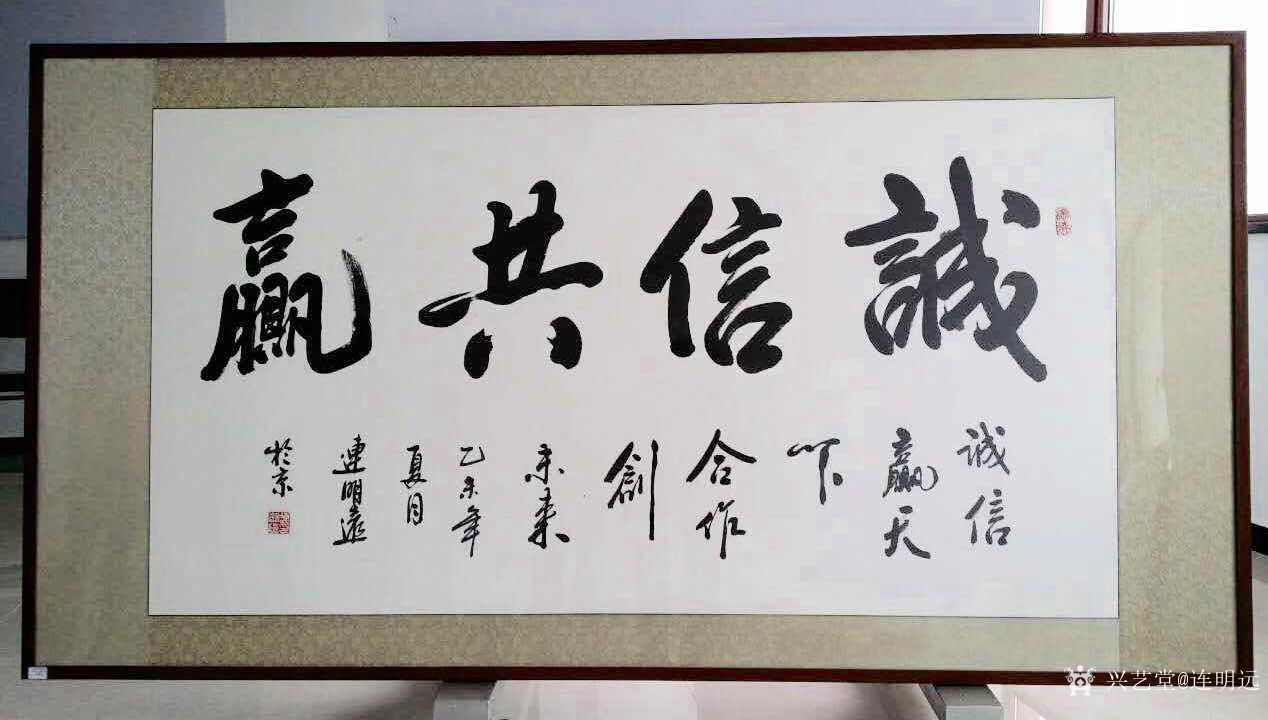 誠信共贏
诚信
贏天
下
合作
創
未来
乙未年
夏月
連明遠
於京
兴艺堂@连明远